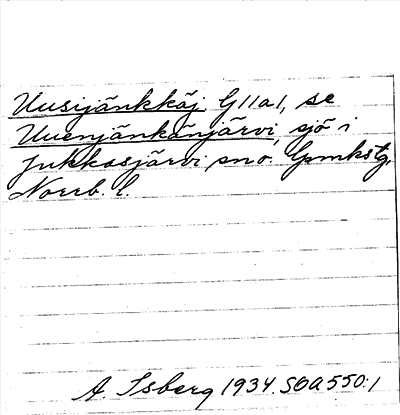 Uusijänkkäj G11a1, se
Uuenjänkänjärvi, sjö i
Jukkasjärvi sn o. Gmkstg,
Norrb. l.
A. Isberg 1934. SOA 550:1